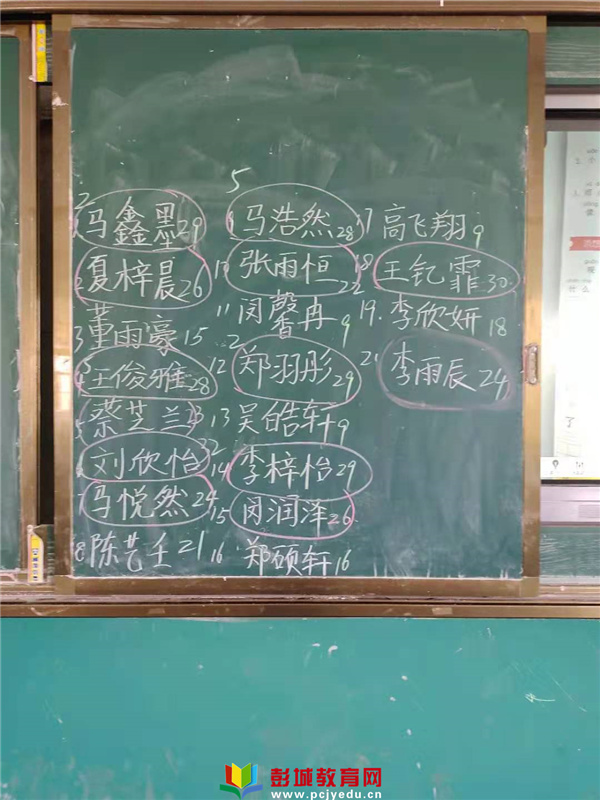 2
马鑫墨29
2夏梓晨26
3董雨豪15
王俊雅28
5蔡芝兰
6刘欣怡32
7马悦然24
8陈艺壬21
5
马浩然28
10张雨恒22
11闵馨冉9
2
12郑羽彤29
13吴皓轩9
14李梓怡29
15闵润泽26
16郑硕轩16
17高飞翔9
18王钇霏30
19.李欣妍18
21李雨辰24
彭城教育网
www.pcjyedu.cn